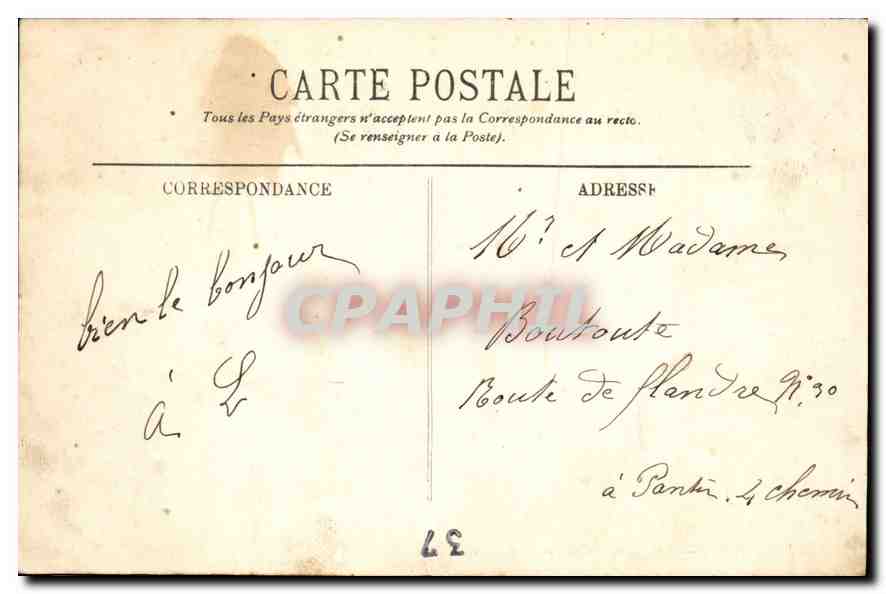 CARTE POSTALE
Tous les Pays étrangers n'acceptent pas la Correspondance au recto.
(Se renseigner à la Poste).
CORRESPONDANCE
bien le bonjour
à L
ADRESSE
Mr et Madame
Boutoute
Route de flandre No. 30
à Pantin. 4 chemin
CPAPHIL
37